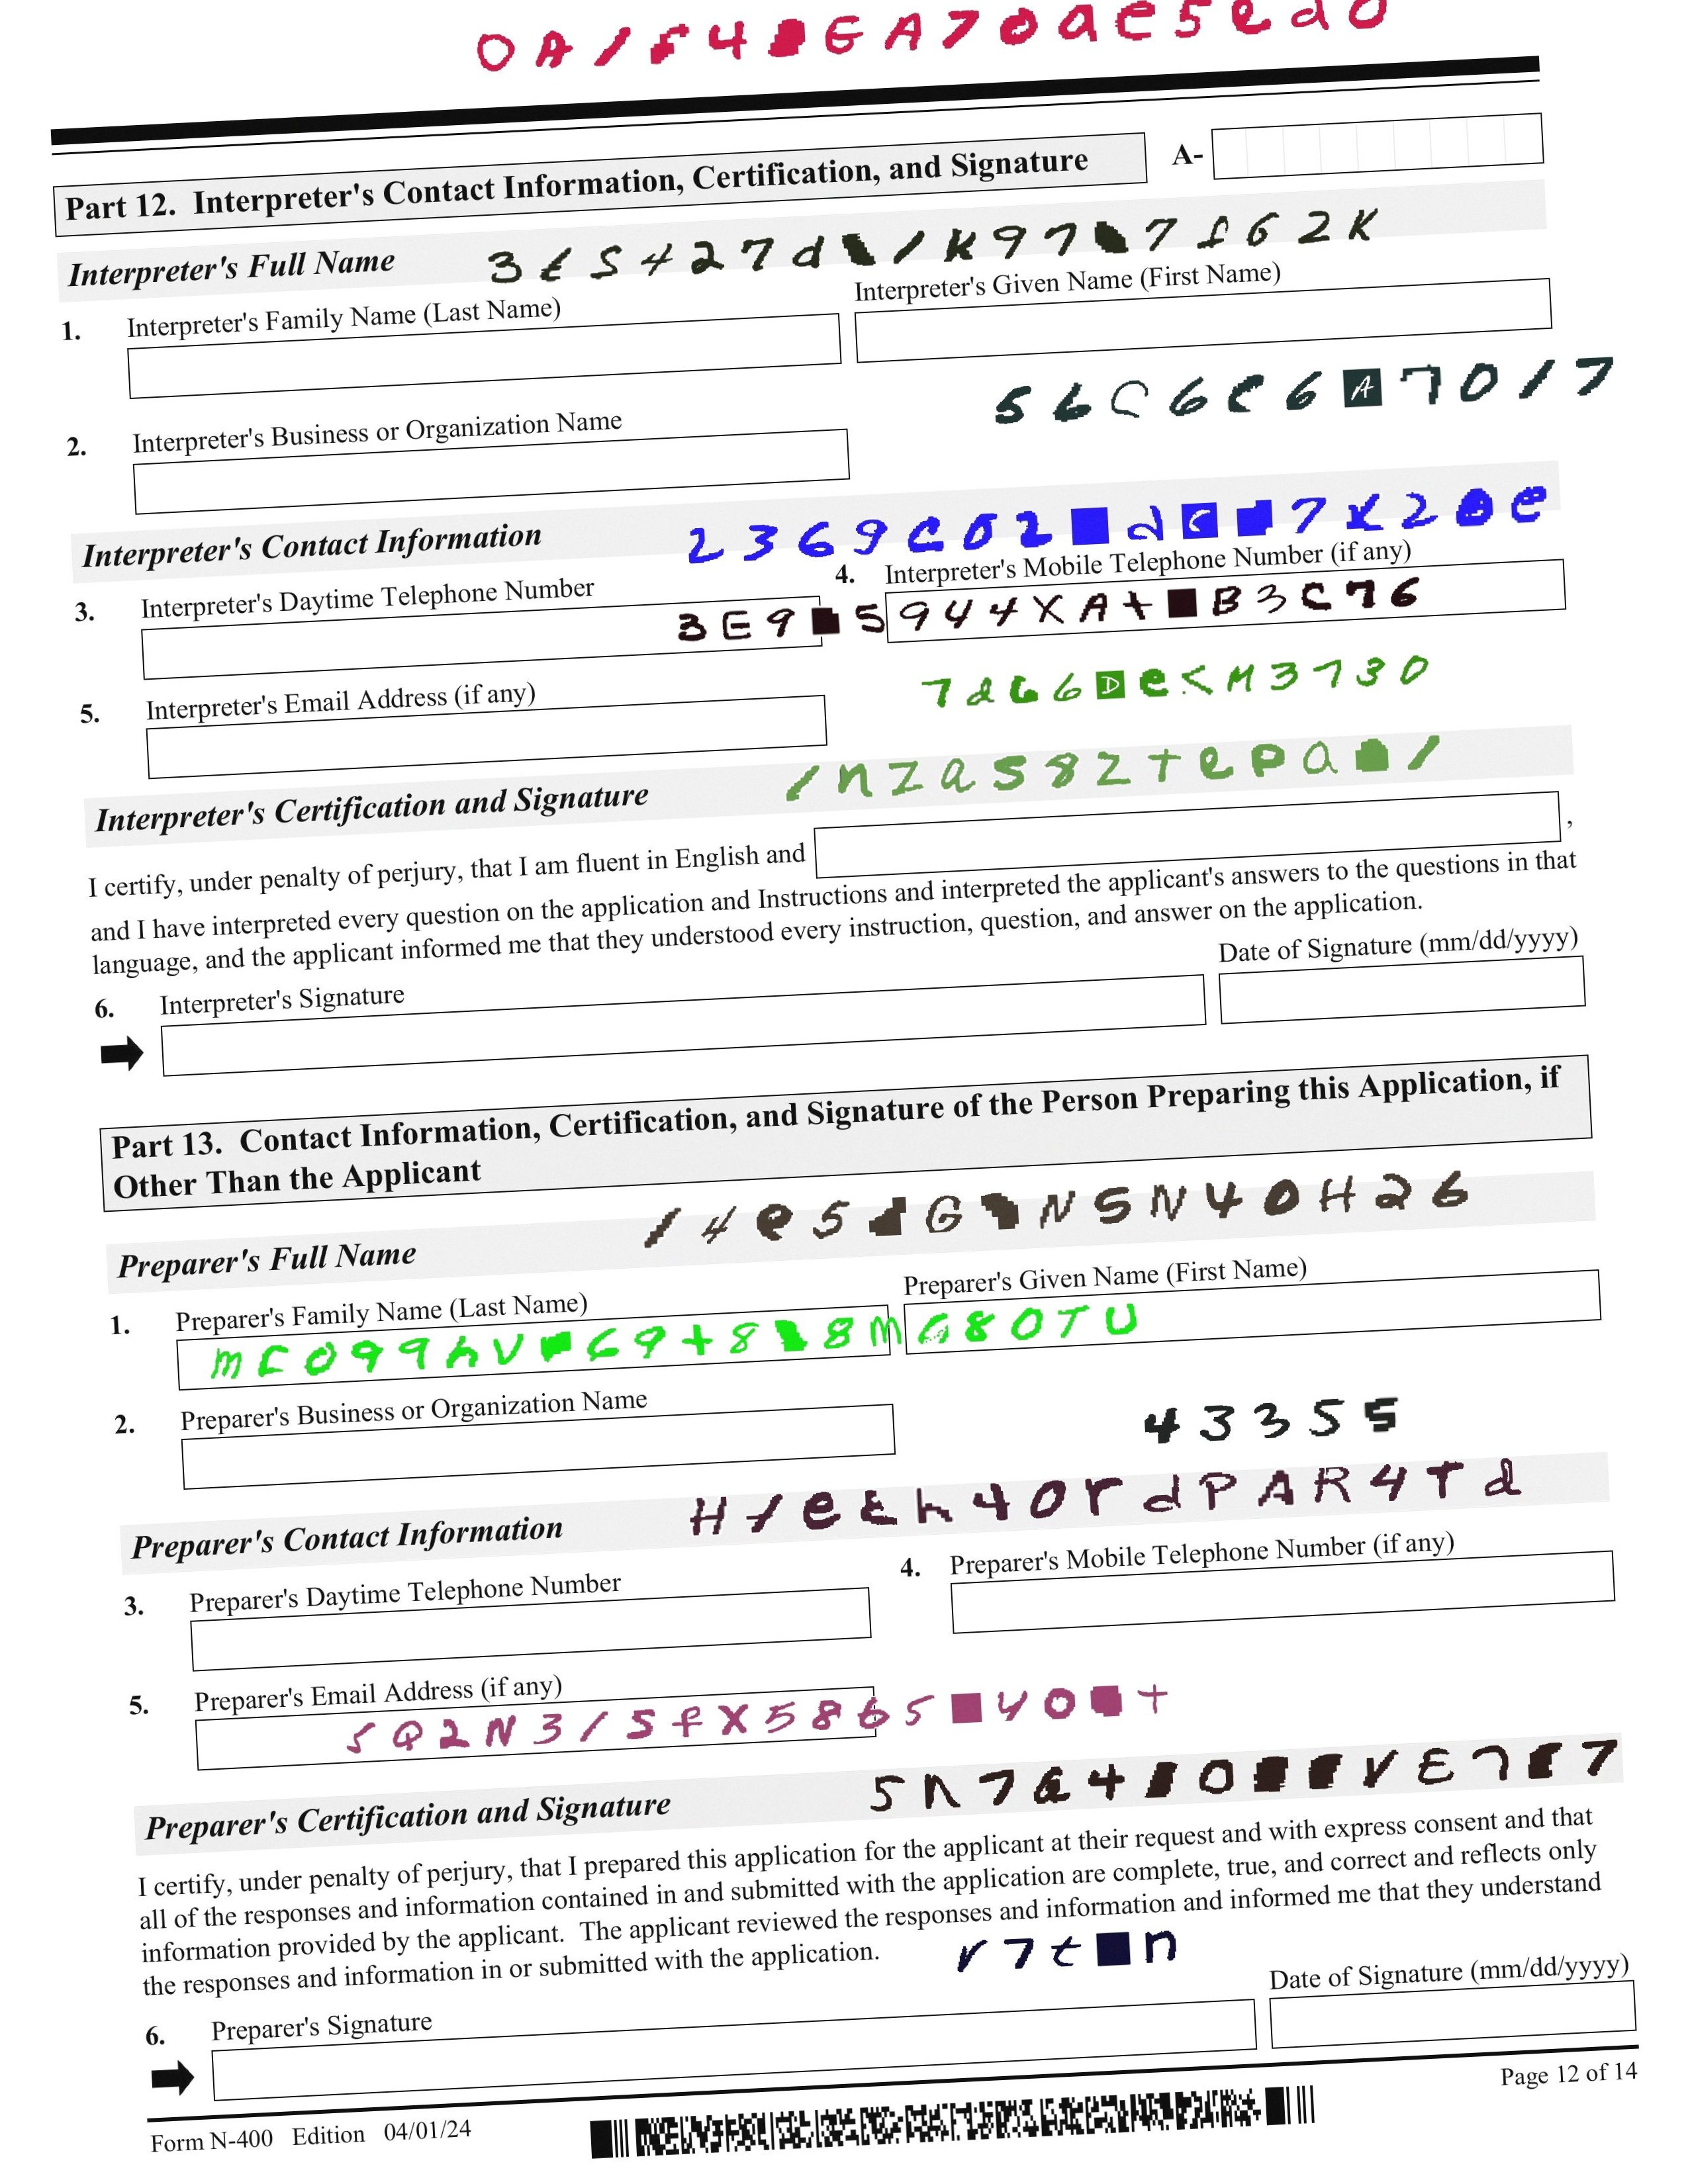 Part 12. Interpreter's Contact Information, Certification, and Signature
A-
Interpreter's Full Name
Interpreter's Given Name (First Name)
1. Interpreter's Family Name (Last Name)
2. Interpreter's Business or Organization Name
Interpreter's Contact Information
4. Interpreter's Mobile Telephone Number (if any)
3. Interpreter's Daytime Telephone Number
5. Interpreter's Email Address (if any)
Interpreter's Certification and Signature
I certify, under penalty of perjury, that I am fluent in English and ,
and I have interpreted every question on the application and Instructions and interpreted the applicant's answers to the questions in that
language, and the applicant informed me that they understood every instruction, question, and answer on the application.
Date of Signature (mm/dd/yyyy)
6. Interpreter's Signature
Part 13. Contact Information, Certification, and Signature of the Person Preparing this Application, if
Other Than the Applicant
Preparer's Full Name
Preparer's Given Name (First Name)
1. Preparer's Family Name (Last Name)
2. Preparer's Business or Organization Name
43355
Preparer's Contact Information
4. Preparer's Mobile Telephone Number (if any)
3. Preparer's Daytime Telephone Number
5. Preparer's Email Address (if any)
Preparer's Certification and Signature
I certify, under penalty of perjury, that I prepared this application for the applicant at their request and with express consent and that
all of the responses and information contained in and submitted with the application are complete, true, and correct and reflects only
information provided by the applicant. The applicant reviewed the responses and information and informed me that they understand
the responses and information in or submitted with the application.
Date of Signature (mm/dd/yyyy)
6. Preparer's Signature
Form N-400 Edition 04/01/24
Page 12 of 14